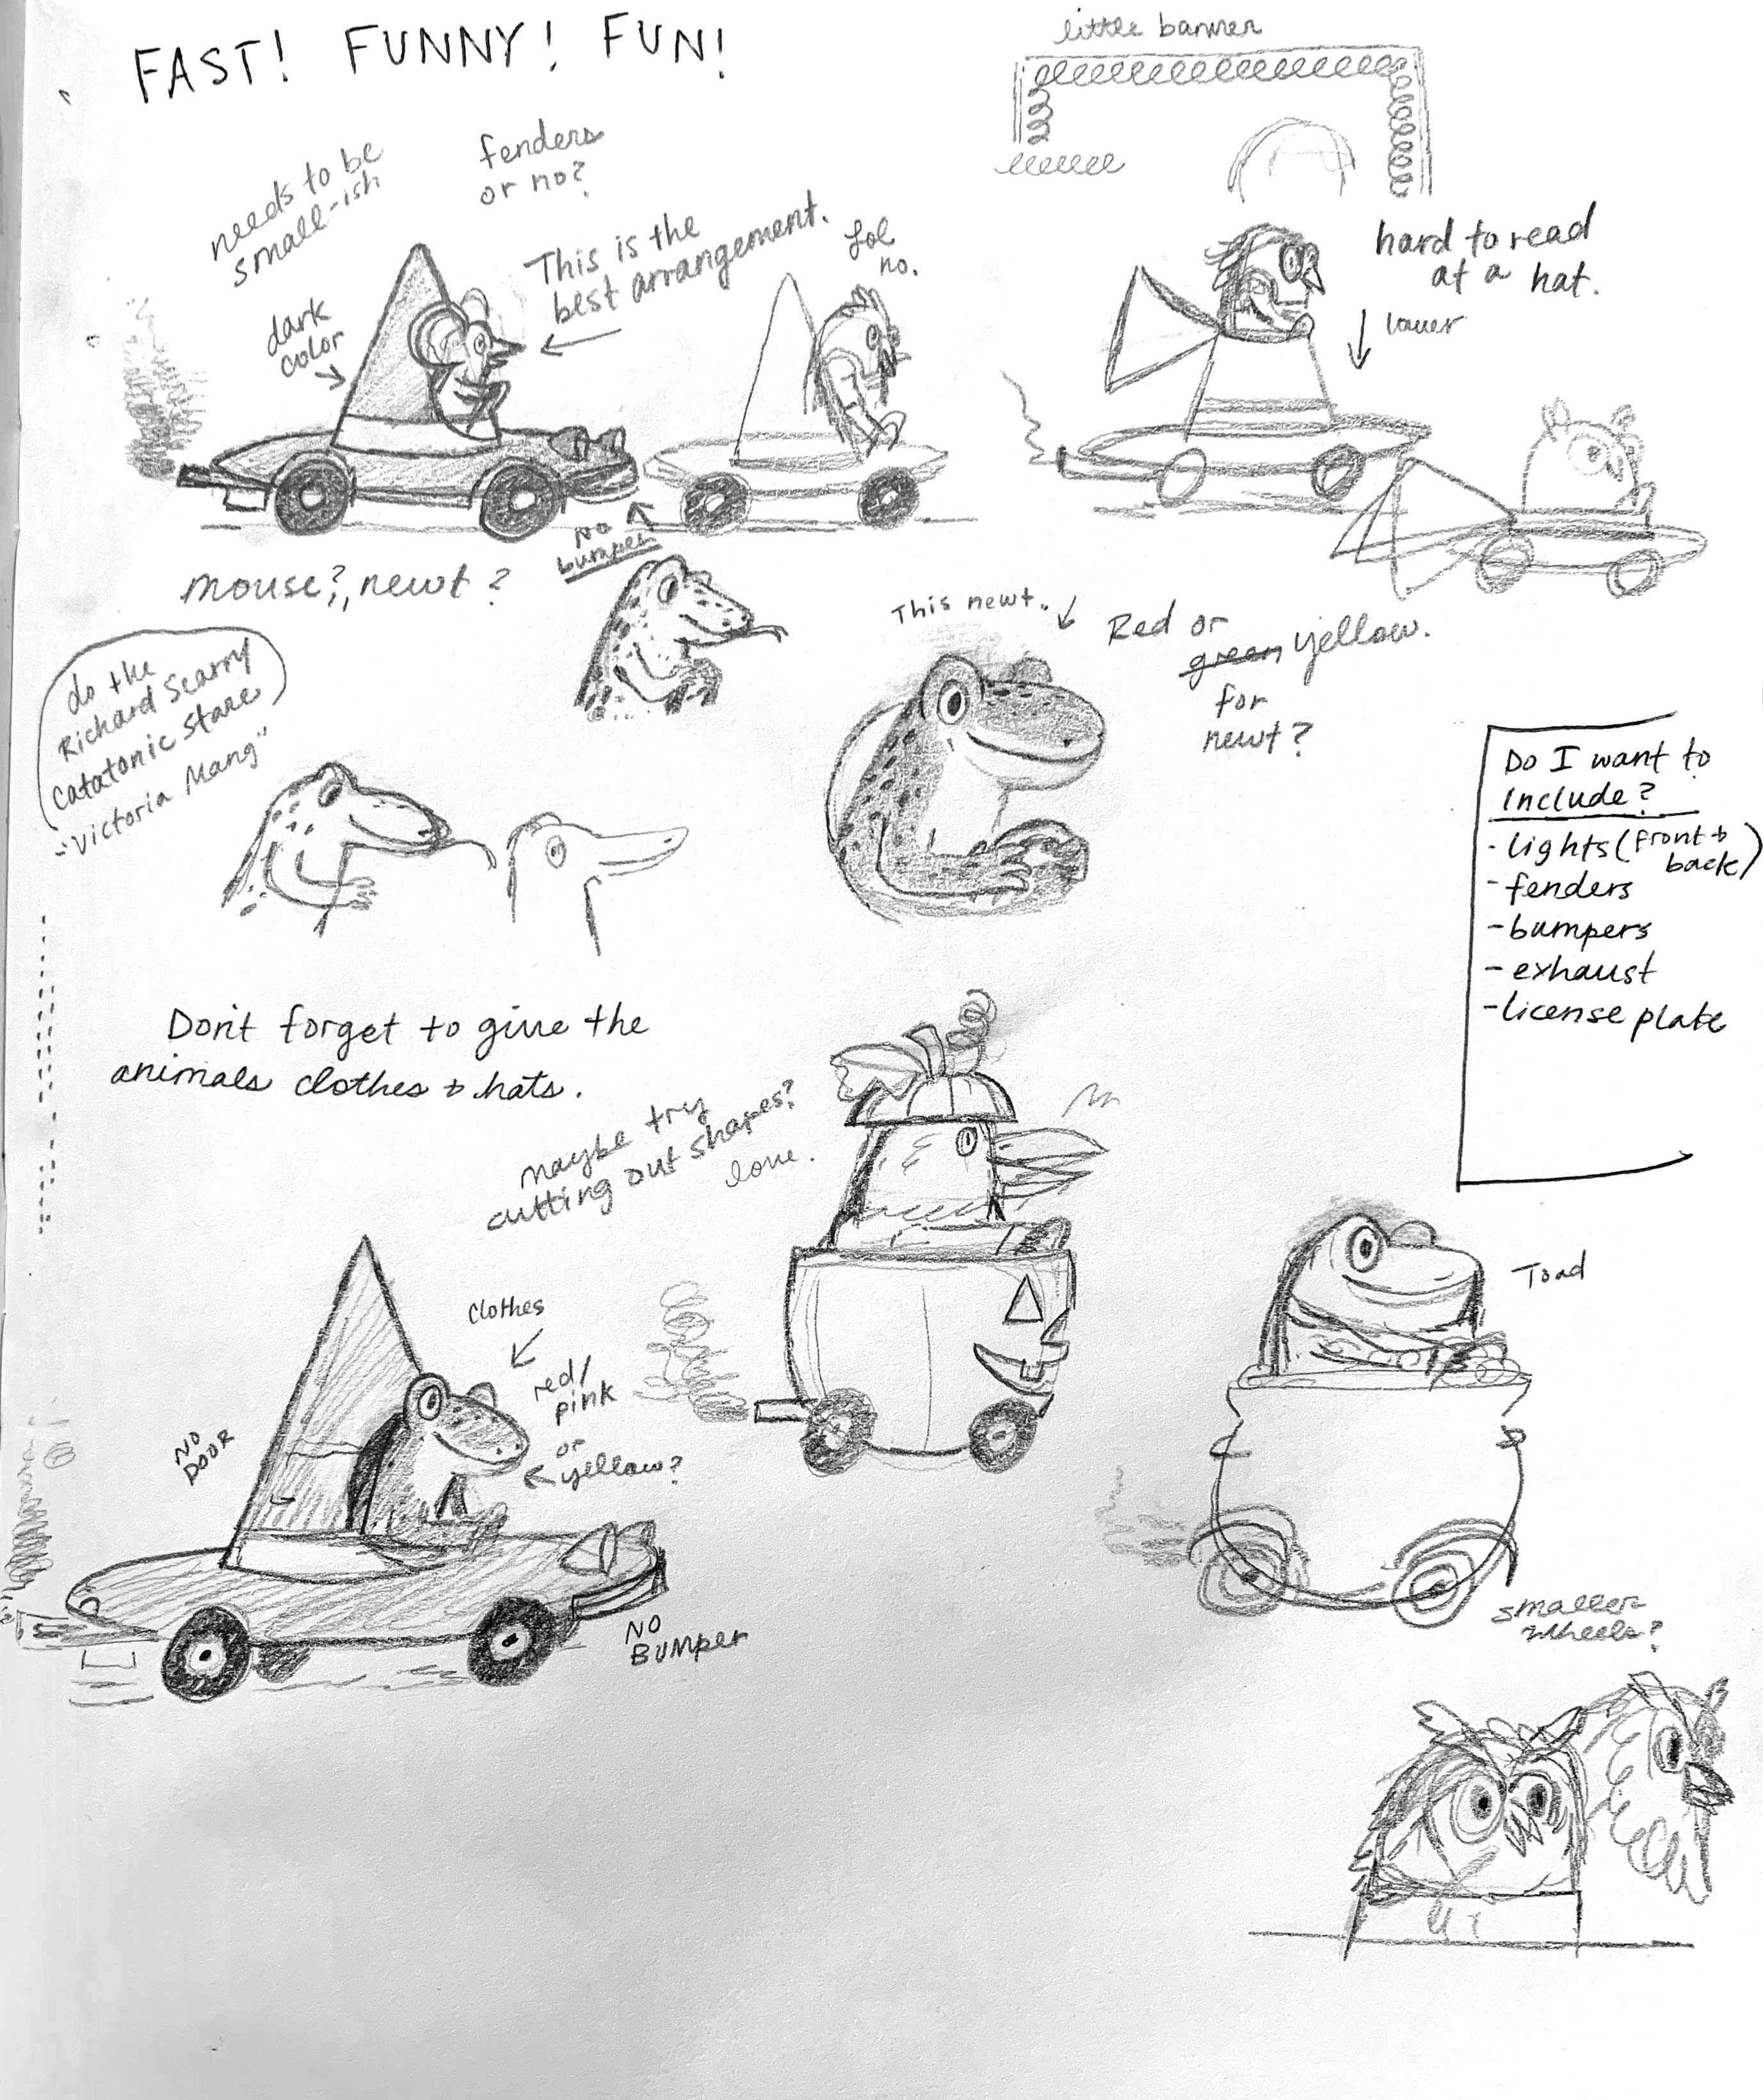 FAST! FUNNY! FUN!
little banner
needs to be
small-ish
fenders
or no?
This is the
best arrangement.
lol
no.
dark
color
hard to read
at a hat.
lower
NO
bumper
mouse?, newt?
This newt.
Red or
green yellow.
for
newt?
do the
Richard Scarry
Catatonic Stare
-"Victoria Mang"
Do I want to
Include?
- lights (front +
back)
- fenders
- bumpers
- exhaust
- license plate
Don't forget to give the
animals clothes + hats.
maybe try
cutting out shapes?
love.
Toad
clothes
red/
pink
or
yellow?
NO
DOOR
NO
BUMPER
smaller
wheels?